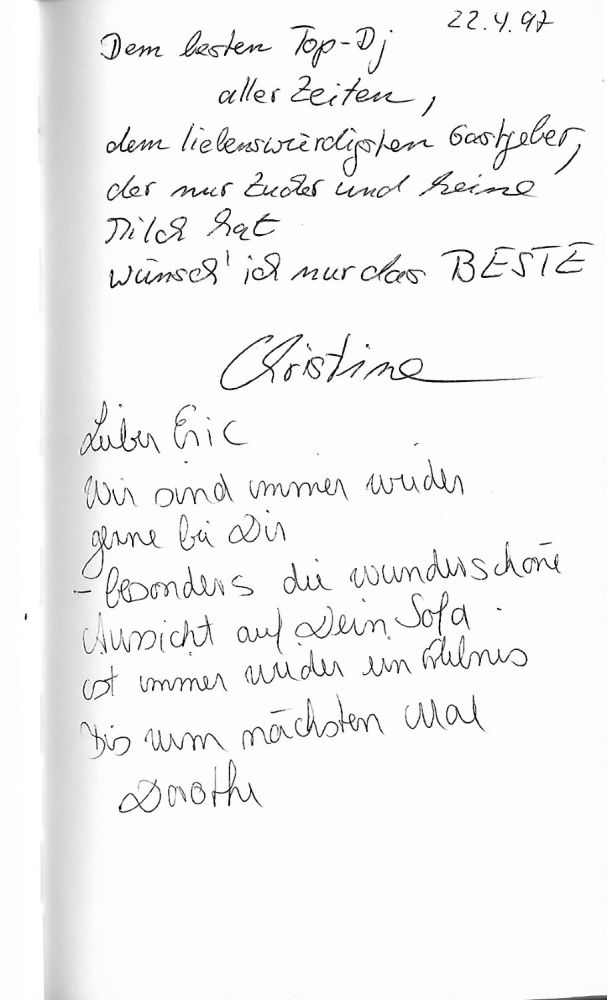 22.4.97
Dem besten Top-Dj
aller Zeiten,
dem liebenswürdigsten Gastgeber,
der nur Zucker und keine
Milch hat
wünsch' ich nur das BESTE
Christine
Lieber Eric
Wir sind immer wieder
gerne bei Dir
- besonders die wunderschöne
Aussicht auf Dein Sofa
ist immer wieder ein Erlebnis
Bis zum nächsten Mal
Dorothe